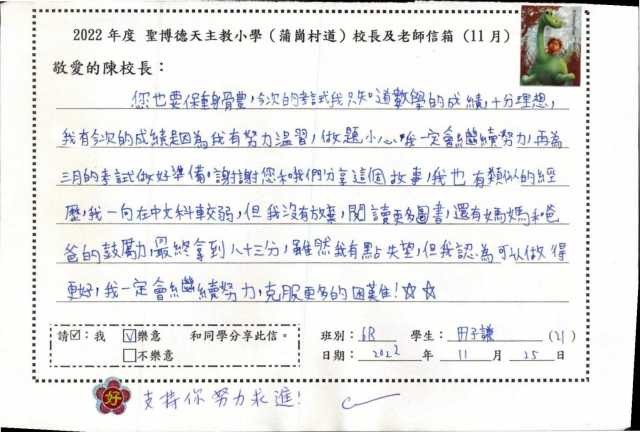 2022 年度 聖博德天主教小學（蒲崗村道）校長及老師信箱（11 月）
敬愛的陳校長：
您也要保重身體，今次的考試我只知道數學的成績，十分理想，
我有今次的成績是因為我有努力溫習，做題小心。我一定會繼續努力，再為
三月的考試做好準備。謝謝您和我們分享這個故事，我也有類似的經
歷，我一向在中文科較弱，但我沒有放棄，閱讀更多圖書，還有媽媽和爸
爸的鼓勵，最終拿到八十三分，雖然我有點失望，但我認為可以做得
更好，我一定會繼續努力，克服更多的困難！☆☆
請☑：我 ☑樂意 和同學分享此信。
□不樂意
班別：6R 學生：田子謙 (21)
日期：2022 年 11 月 25 日
好 支持你努力求進！